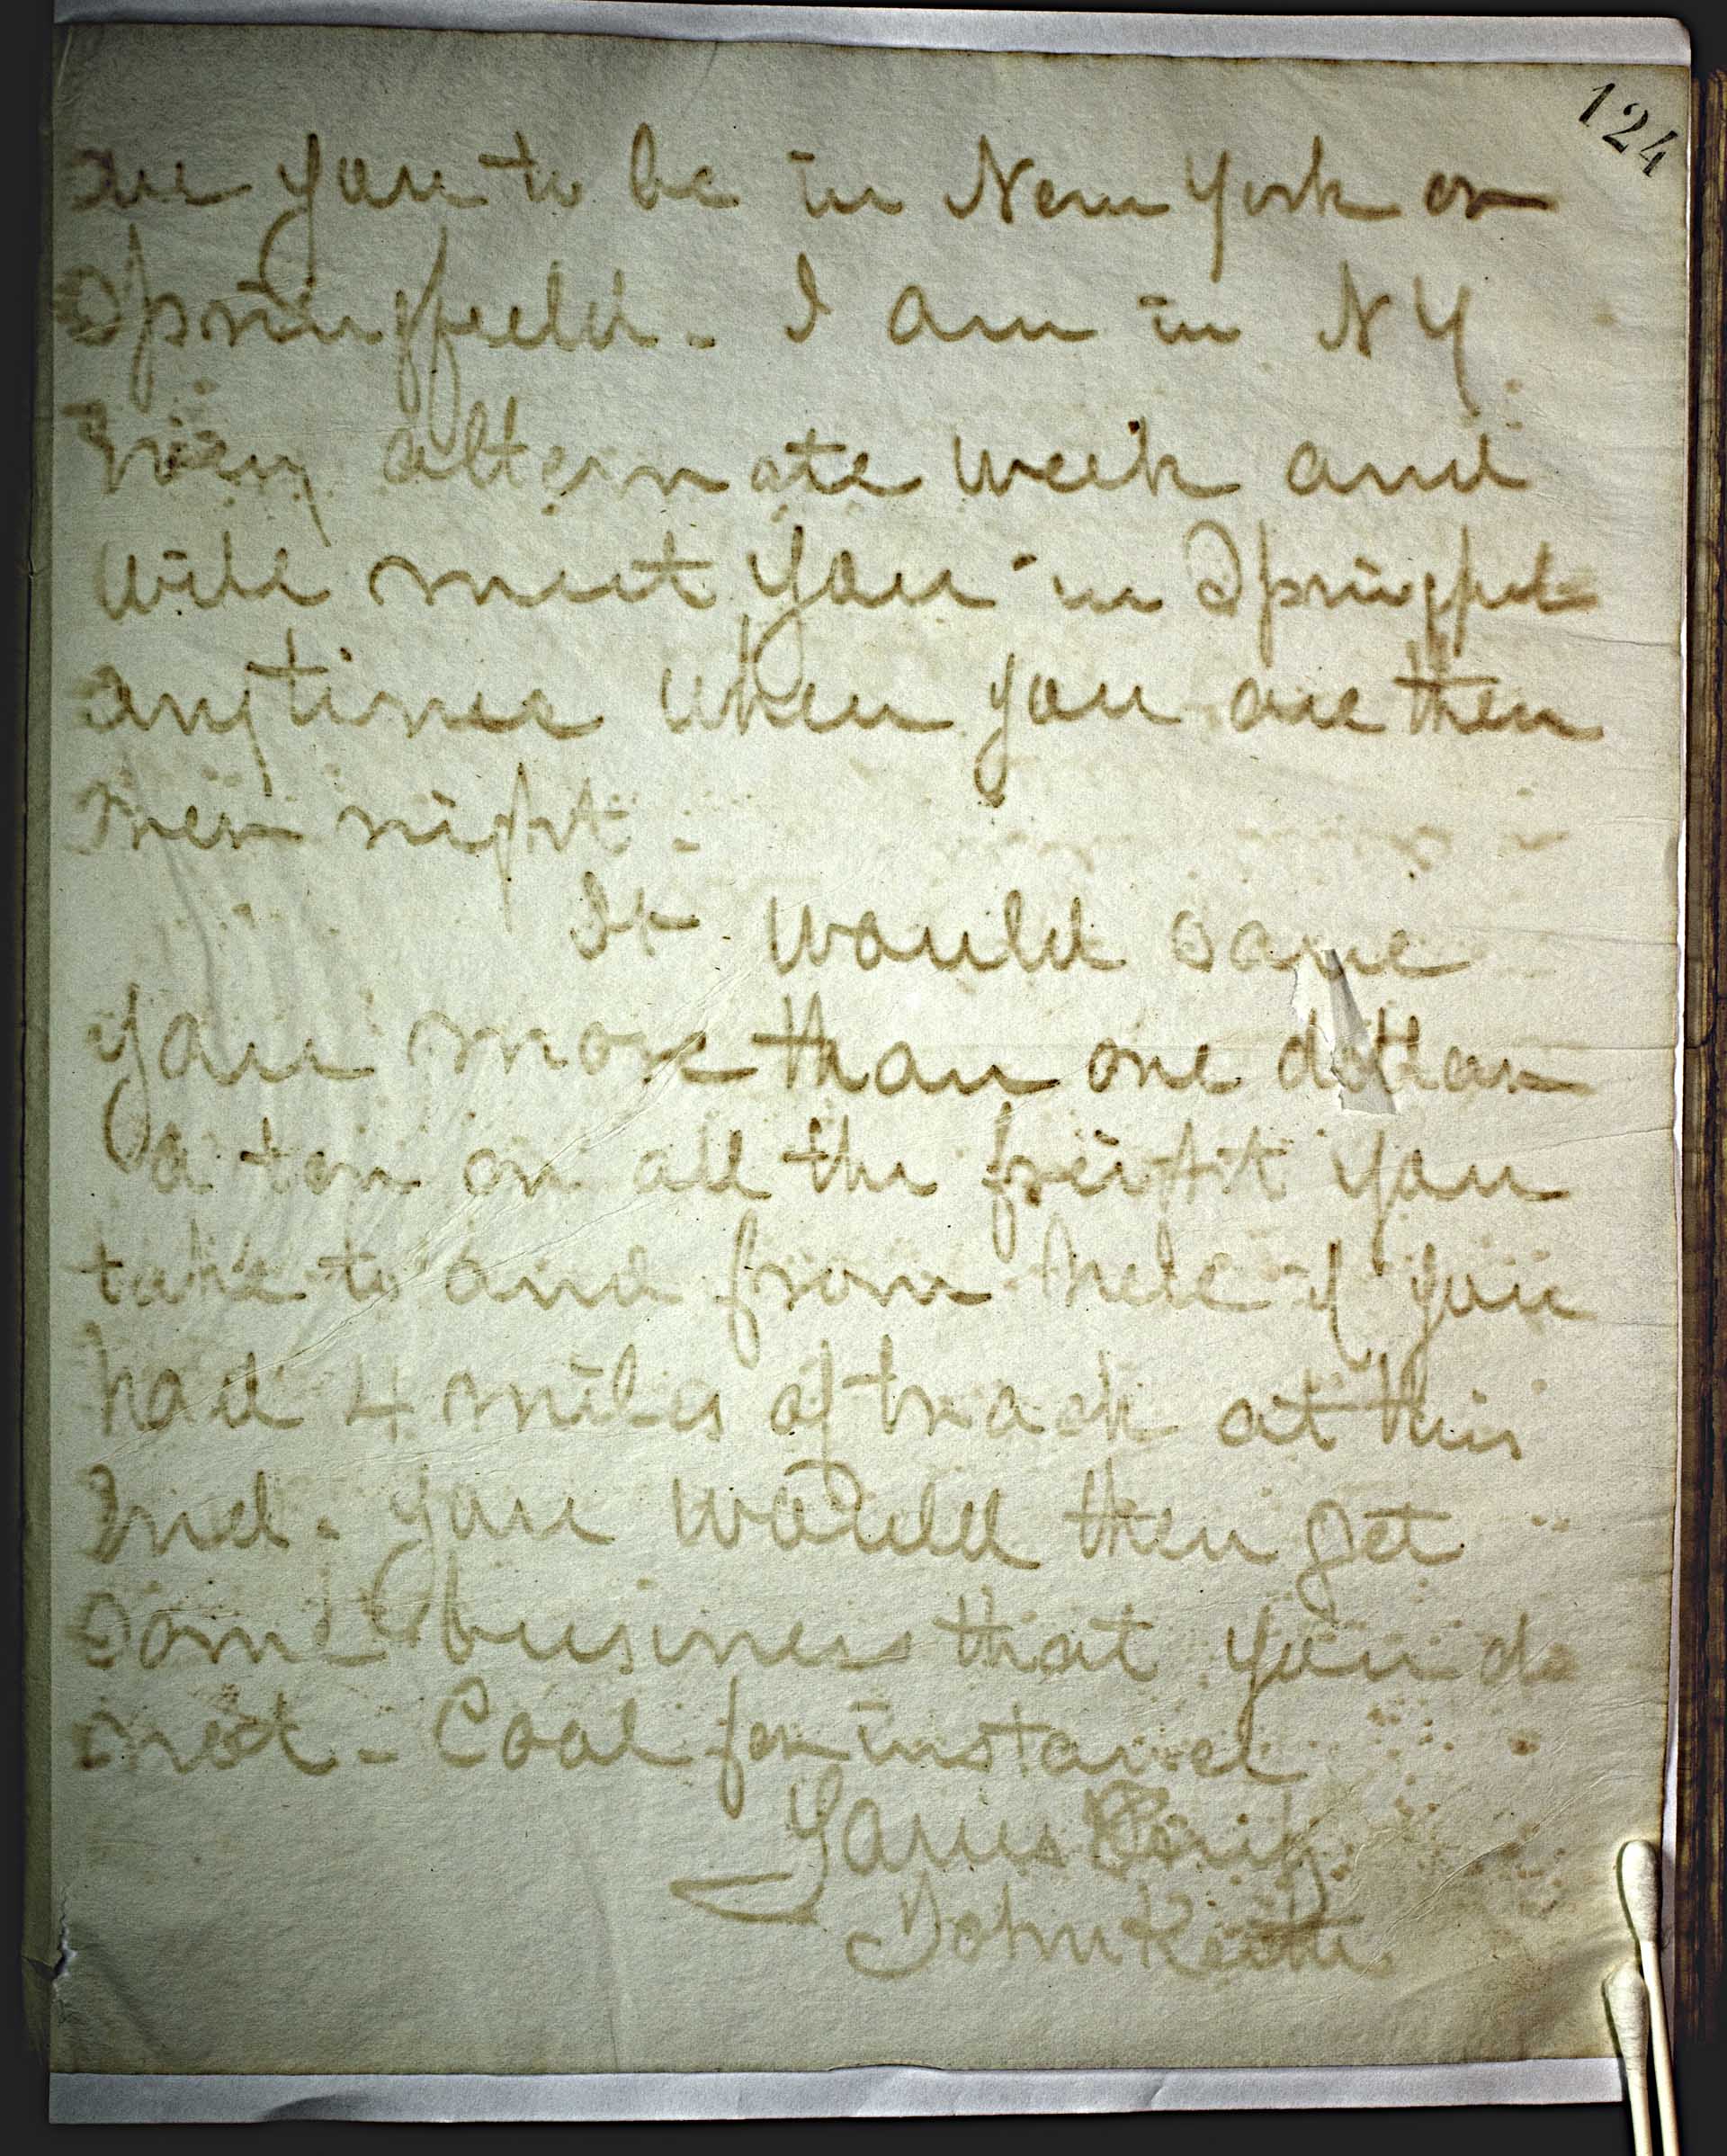 124
are you to be in New York or
Springfield. I am in NY
Every alternate week and
will meet you in Springfield
anytime when you are then
over night.
It would save
you more than one dollar
a ton on all the freight you
take to and from here if you
had 4 miles of track at this
End. you would then get
some business that you do
not - Coal for instance
Yours Truly
John Keith